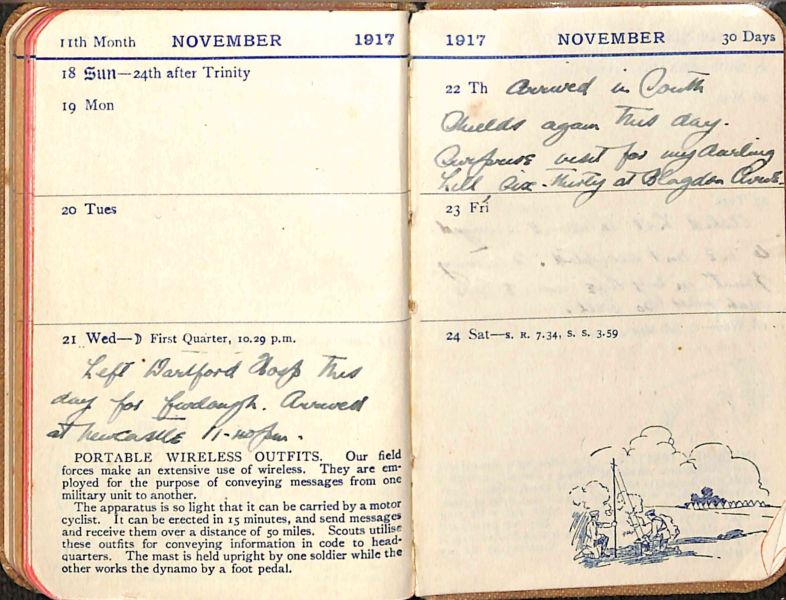 11th Month NOVEMBER 1917
18 Sun—24th after Trinity
19 Mon
20 Tues
21 Wed—☽ First Quarter, 10.29 p.m.
Left Dartford Hosp this
day for furlough. Arrived
at Newcastle 11-40pm.
PORTABLE WIRELESS OUTFITS. Our field
forces make an extensive use of wireless. They are em-
ployed for the purpose of conveying messages from one
military unit to another.
The apparatus is so light that it can be carried by a motor
cyclist. It can be erected in 15 minutes, and send messages
and receive them over a distance of 50 miles. Scouts utilise
these outfits for conveying information in code to head-
quarters. The mast is held upright by one soldier while the
other works the dynamo by a foot pedal.
1917 NOVEMBER 30 Days
22 Th Arrived in South
Shields again this day.
Surprise visit for my darling
Six-thirty at Blagdon
23 Fri
24 Sat—S. R. 7.34, S. S. 3.59